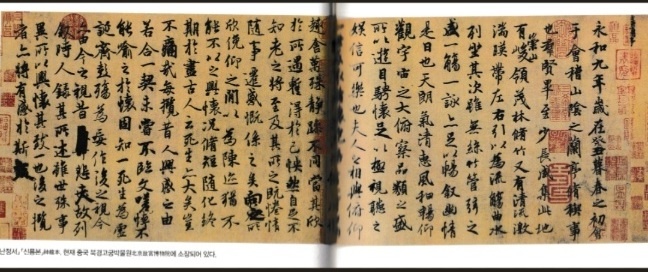 永和九年歲在癸丑暮春之初會
于會稽山陰之蘭亭脩稧事
也羣賢畢至少長咸集此地
有崇山峻領茂林脩竹又有清流激
湍暎帶左右引以為流觴曲水
列坐其次雖無絲竹管弦之
盛一觴一詠亦足以暢敘幽情
是日也天朗氣清惠風和暢仰
觀宇宙之大俯察品類之盛
所以遊目騁懷足以極視聽之
娛信可樂也夫人之相與俯仰
趣舍萬殊靜躁不同當其欣
於所遇蹔得於己怏然自足不
知老之將至及其所之既惓情
隨事遷感慨係之矣向之所
欣俛仰之閒以為陳迹猶不
能不以之興懷況脩短隨化終
期於盡古人云死生亦大矣豈
不痛哉每攬昔人興感之由
若合一契未嘗不臨文嗟悼不
能喻之於懷固知一死生為虛
誕齊彭殤為妄作後之視今
亦由今之視昔悲夫故列
敘時人錄其所述雖世殊事
異所以興懷其致一也後之攬
者亦將有感於斯文
난정서, 『신룡본』神龍本, 현재 중국 북경고궁박물원北京故宮博物院에 소장되어 있다.